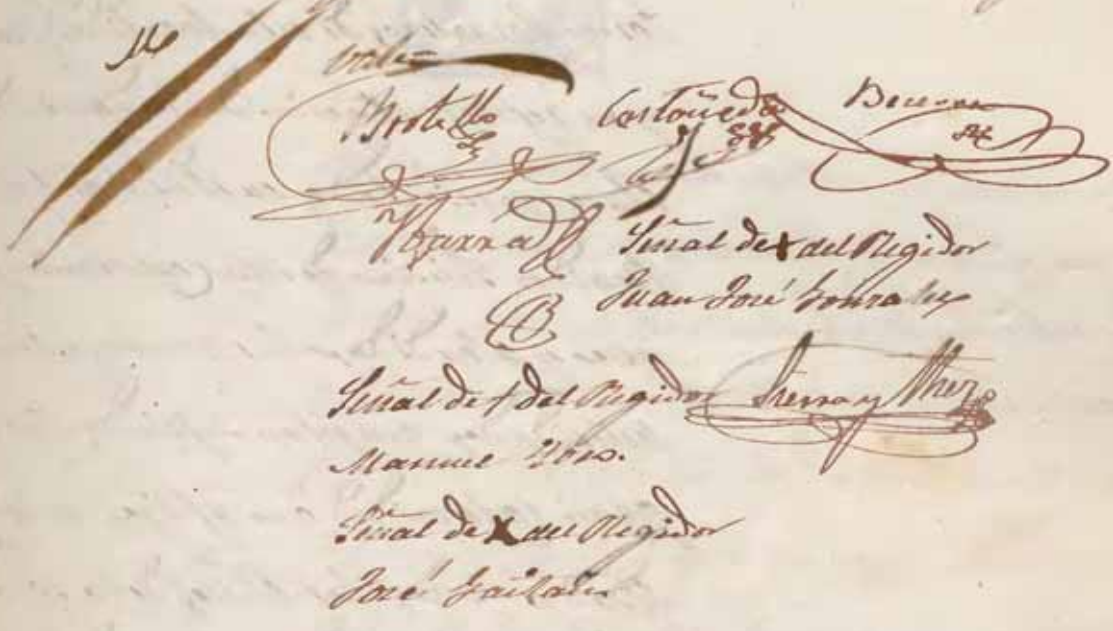 vale=
Botello Castañeda Becerra
Ybarra Señal de x del Regidor
Juan José Gonzales
Señal de + del Regidor
Manuel
Señal de x del Regidor
José